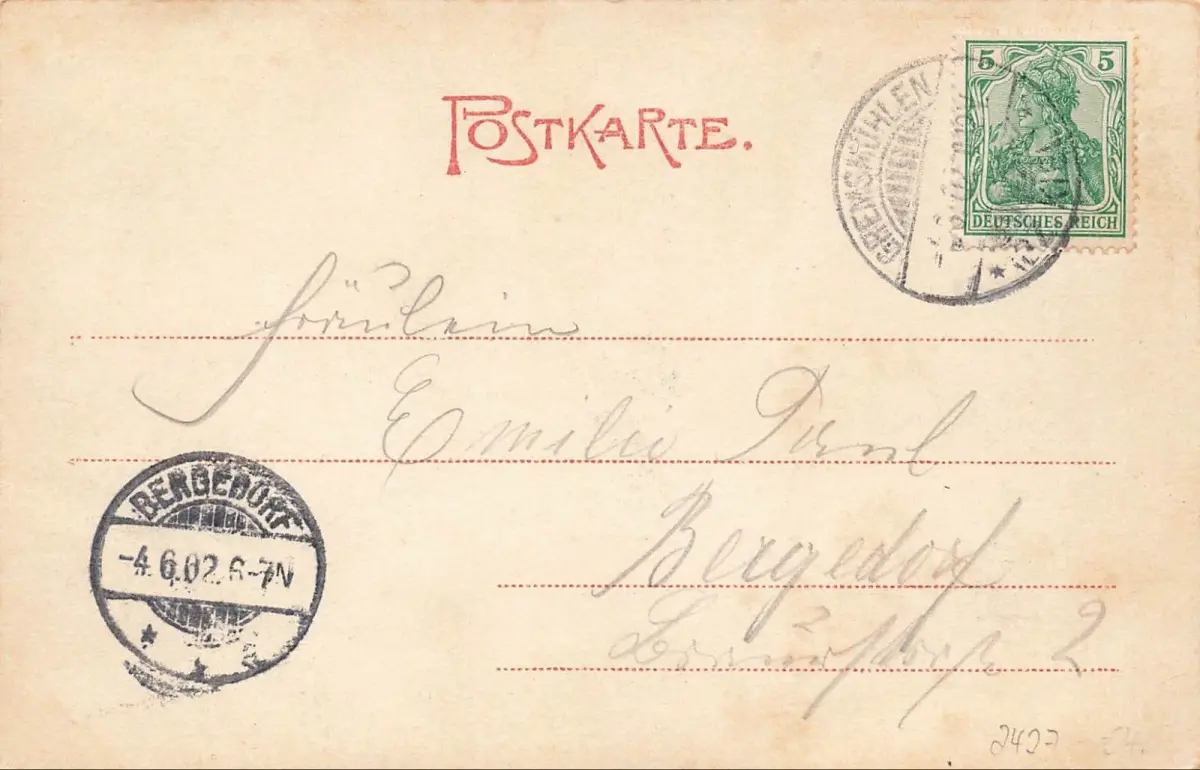 POSTKARTE.
5 5
DEUTSCHES REICH
GREMSMÜHLEN
Fräulein
Emilie Paul
Bergedorf
2
BERGEDORF
-4.6.02.6-7N
2427